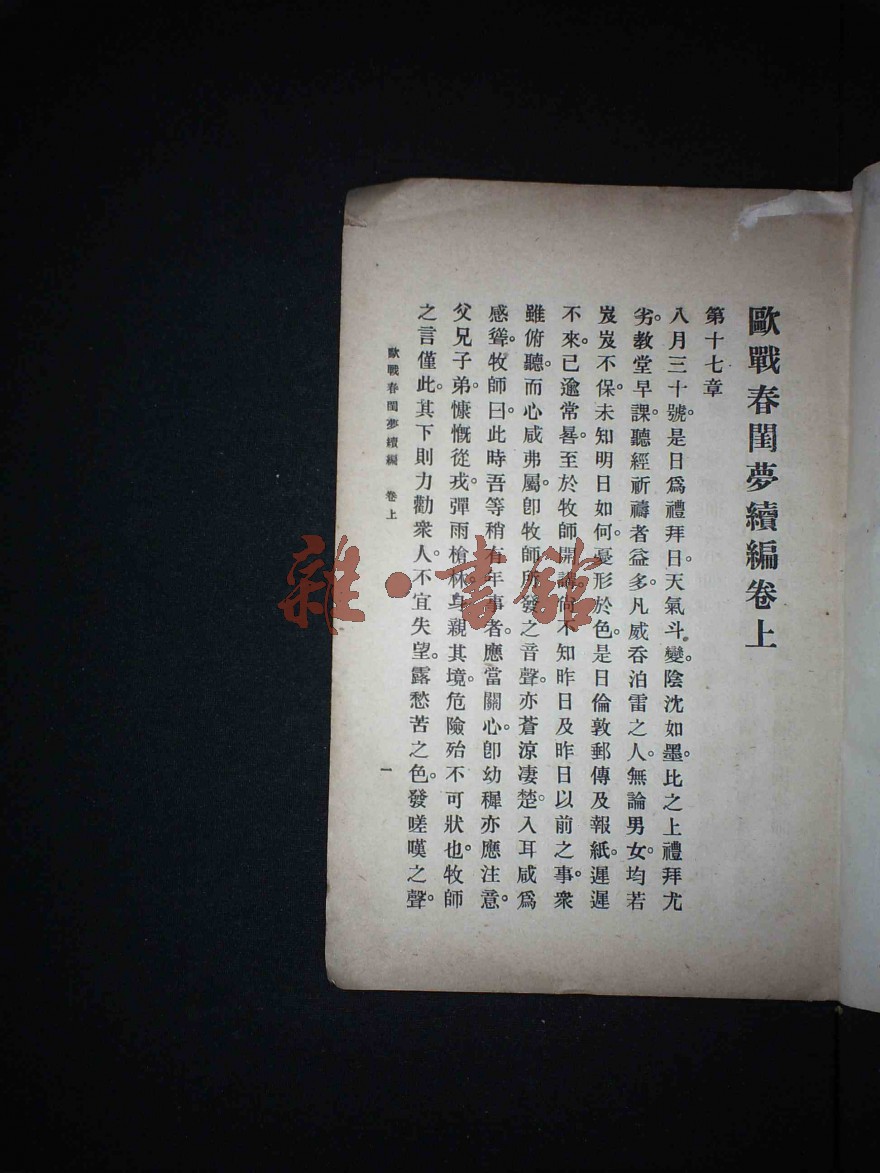 歐戰春閨夢續編卷上
第十七章
八月三十號。是日爲禮拜日。天氣斗變。陰沈如墨。比之上禮拜尤
劣。教堂早課。聽經祈禱者益多。凡威吞泊雷之人。無論男女。均若
岌岌不保。未知明日如何。憂形於色。是日倫敦郵傳及報紙。遲遲
不來。已逾常晷。至於牧師開講。尚不知昨日及昨日以前之事。衆
雖俯聽。而心咸弗屬。卽牧師所發之音聲。亦蒼凉凄楚。入耳咸爲
感聳。牧師曰。此時吾等稍有年事者。應當關心。卽幼穉亦應注意。
父兄子弟。慷慨從戎。彈雨槍林。身親其境。危險殆不可狀也。牧師
之言僅此。其下則力勸衆人。不宜失望。露愁苦之色。發嗟嘆之聲。
歐戰春閨夢續編 卷上
一
雜·書館